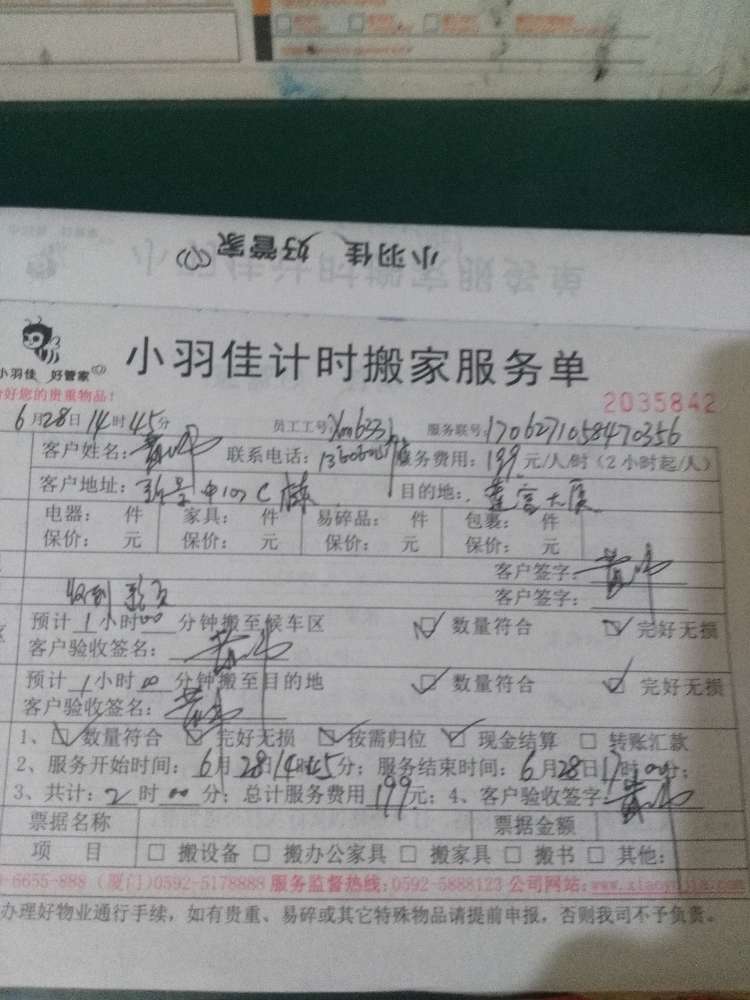 小羽佳 好管家
小羽佳 好管家
小羽佳计时搬家服务单
好您的贵重物品！
2035842
6月28日14时45分 员工工号: 服务联号:1706271058470356
客户姓名: 联系电话: 服务费用:199元/人/时（2小时起/人）
客户地址: 目的地: 大厦
电器: 件 家具: 件 易碎品: 件 包裹: 件
保价: 元 保价: 元 保价: 元 保价: 元
客户签字:
收到 客户签字:
预计1小时00分钟搬至候车区 ☑数量符合 ☑完好无损
客户验收签名:
预计1小时00分钟搬至目的地 ☑数量符合 ☑完好无损
客户验收签名:
1、☑数量符合 ☑完好无损 ☑按需归位 ☑现金结算 □转账汇款
2、服务开始时间:6月28日14时45分;服务结束时间:6月28日17时00分;
3、共计:2时00分;总计服务费用199元;4、客户验收签字:
票据名称 票据金额
项 目 □搬设备 □搬办公家具 □搬家具 □搬书 □其他:
-6655-888 (厦门)0592-5178888 服务监督热线:0592-5888123 公司网站:www.xiaoyujia.com
办理好物业通行手续，如有贵重、易碎或其它特殊物品请提前申报，否则我司不予负责。